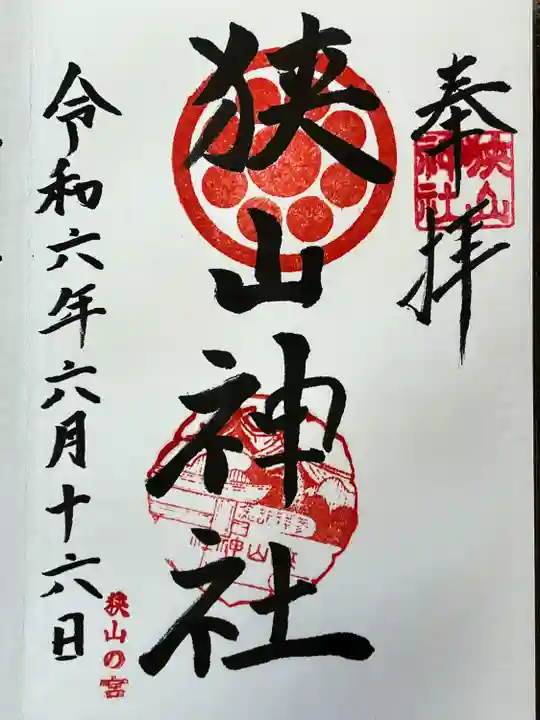 奉拝
狭山
神社
狭山神社
参拝記念
狭山神社
令和六年六月十六日
狭山の宮